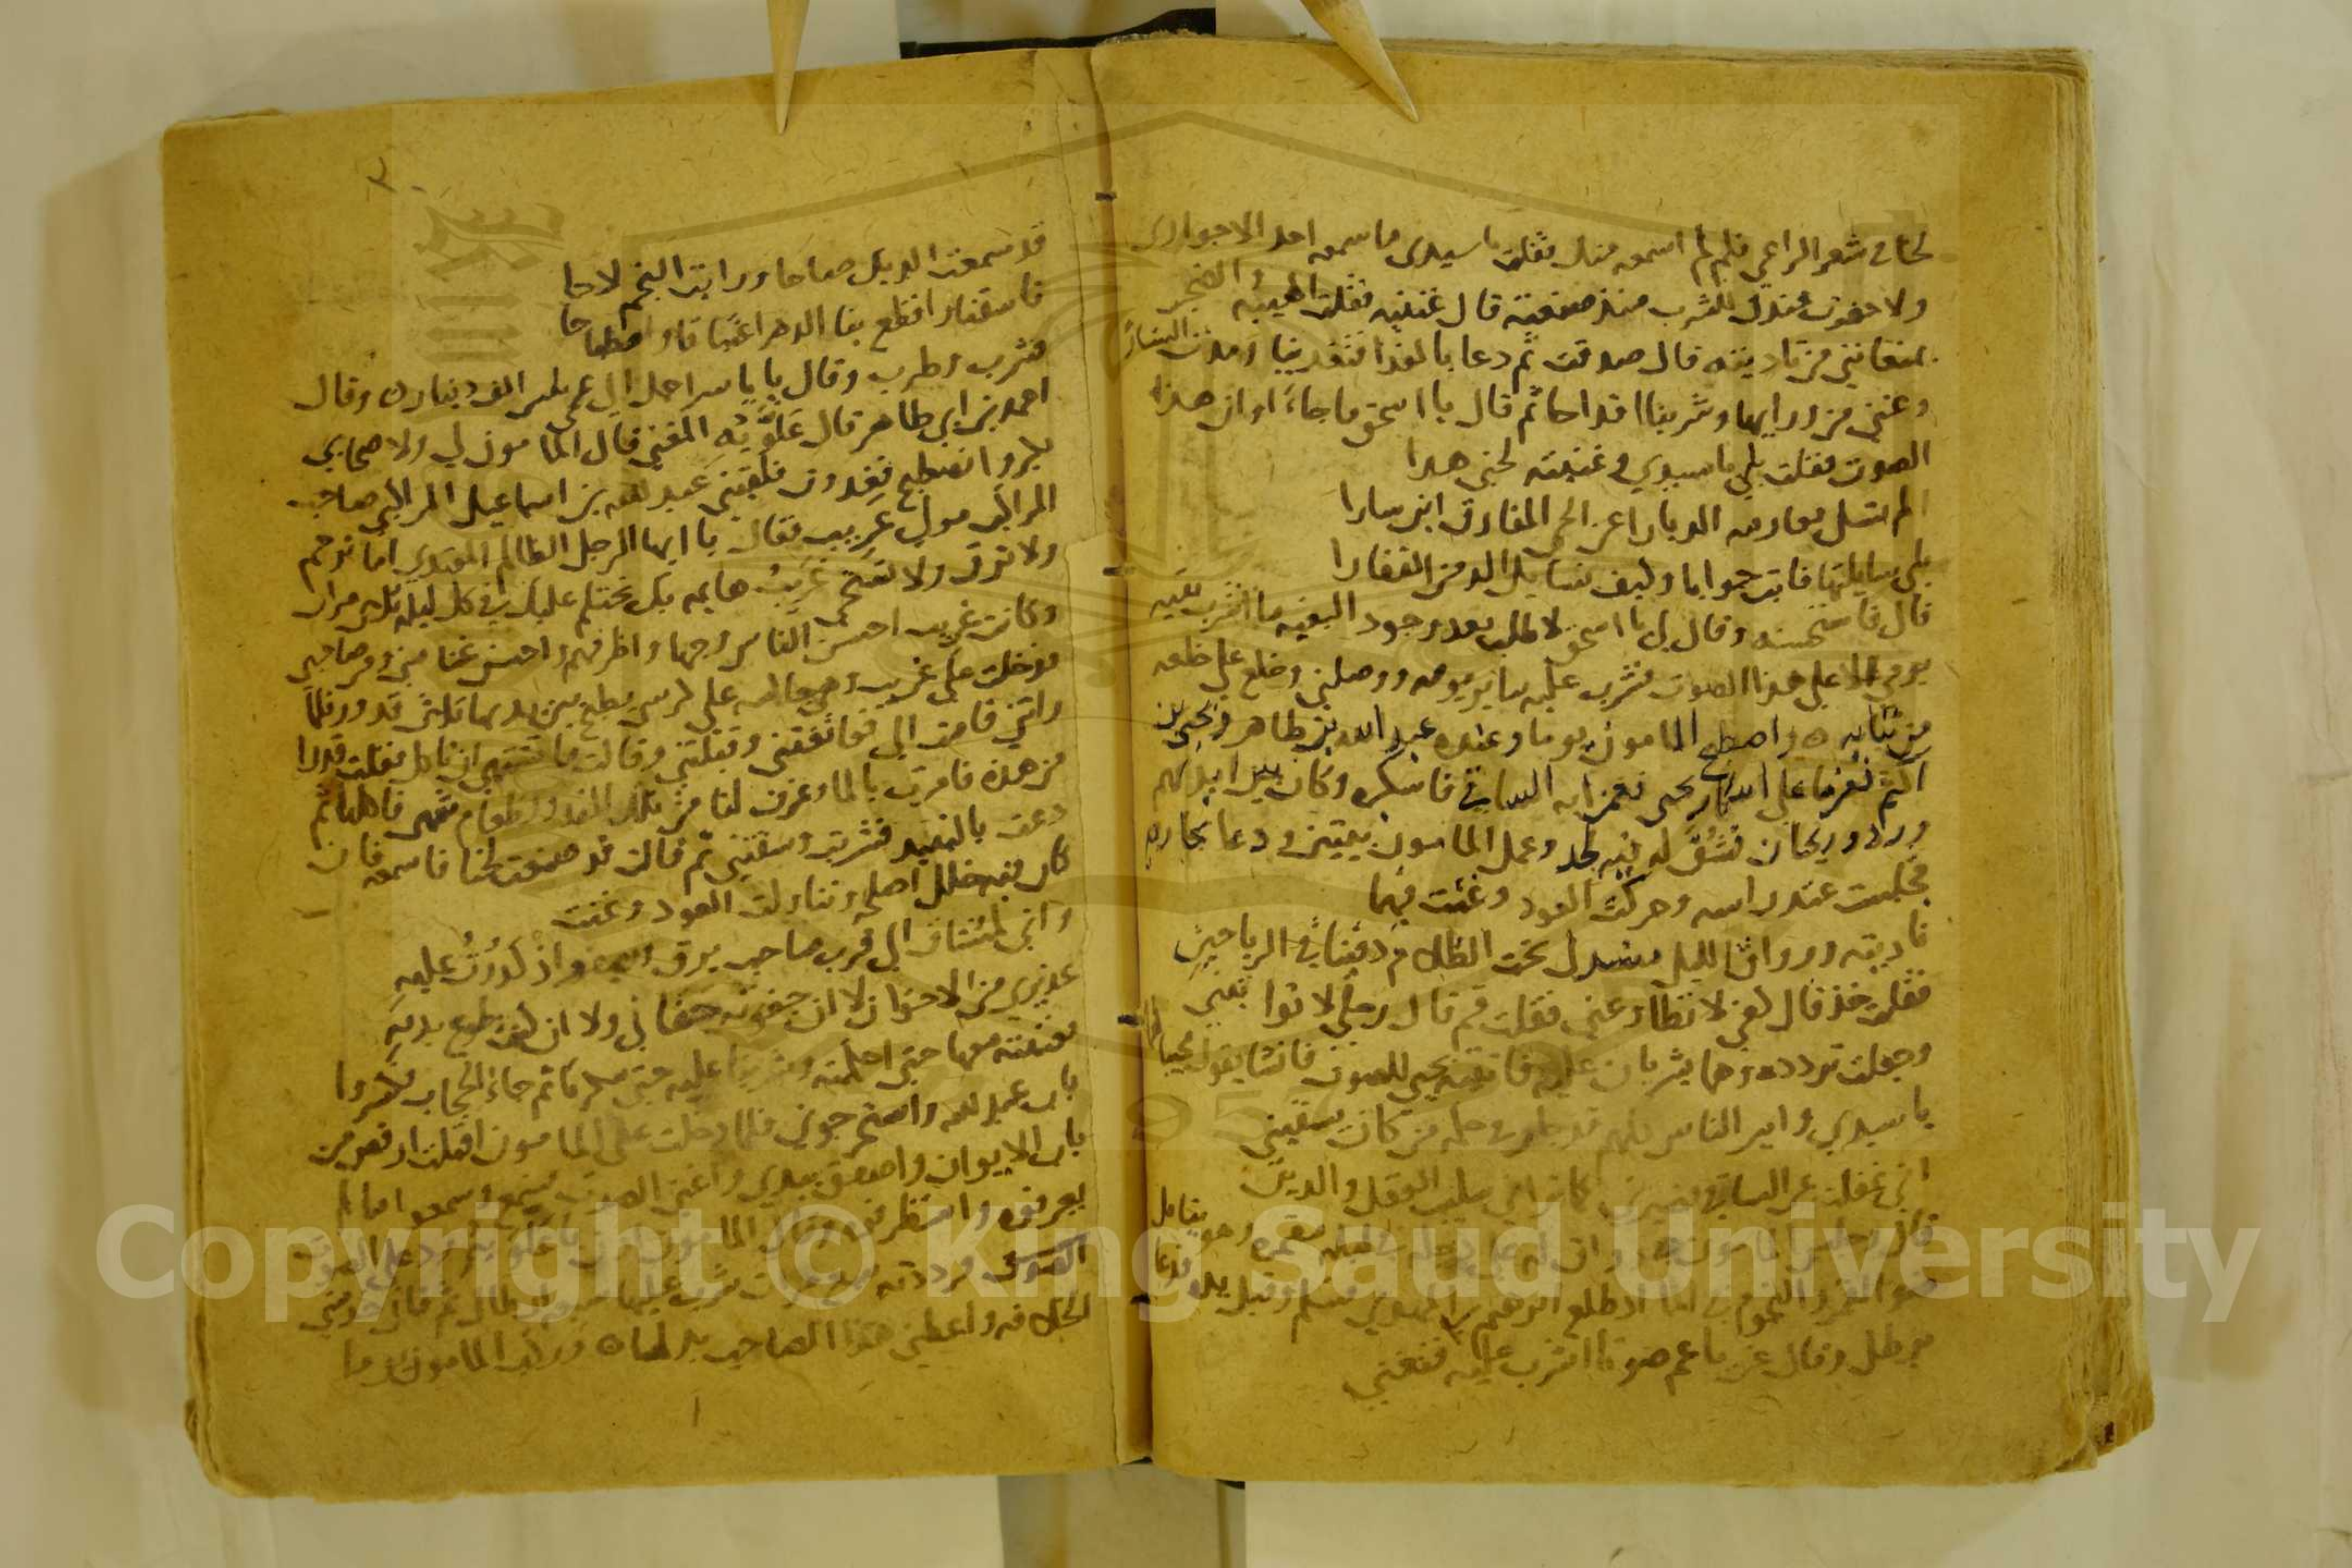 لحنا في شعر الراعي فلم لم اسمعه منك فقلت يا سيدي ما سمعه احد الا جواري
ولا حضرت عندك للشرب منذ صنعته قال غننيه فقلت الهيبة والضجر
يمنعانني من تاديته قال صدقت ثم دعا بالغدا فتغدينا ومدت الستارة
وغنى من ورايها وشربنا اقداحا ثم قال يا اسحق ما جاء اوان هذا
الصوت فقلت بلى يا سيدي وغنيته لحني هذا
الم تسل بعارمه الديارا عن الحي المفارق اين سارا
بلى سايلتها فابت جوابا وكيف تسايل الدمن القفارا
قال فاستحسنه وقال لي يا اسحق لا طلب بعد وجود البغيه ما اشرب بقيه
يومي الا على هذا الصوت فشرب عليه ساير يومه ووصلني وخلع علي خلعه
من ثيابه واصطبح المامون يوما وعنده عبد الله بن طاهر ويحيى بن
اكثم فغمز الساقي فاسكره وكان بين ايديهم
ورد وريحان فشق له فيه لحد وعمل المامون بيتين ودعا بجاريه
فجلست عند راسه وحركت العود وغنت فيهما
ناديته ورواق الليل منسدل تحت الظلام دفينا في الرياحين
فقلت خذ قال كفي لا تطاوعني فقلت قم قال رجلي لا تواتيني
وجعلت تردده وهما يشربان عليه فانتبه يحيى للصوت فانشا يقول مجيبا لها
يا سيدي وامير الناس كلهم قد جار في حكمه من كان يسقيني
اني غفلت عن الساقي فصيرني كما تراني سليب العقل والدين
قال وجلس المامون على دجله في ليله مقمره وهو يتامل
ضو القمر والنجوم في الما اذ طلع ابرهيم بن المهدي فسلم وقبل يده فدعا
برطل وقال غن يا عم صوتا اشرب عليه فغنى
قد سمعت الديك صاحا ورايت النجم لاحا
فاسقنا واقطع بنا الدهر اغتباقا واصطباحا
فشرب وطرب وقال يا ياسر احمل الى عمي عشر الف دينار وقال
احمد بن ابي طاهر قال علويه المغني قال المامون لي ولاصحابي
بكروا لنصطبح فغدوت فلقيني عبد الله بن اسماعيل المراكبي صاحب
المراكب مولى عريب فقال يا ايها الرجل الظالم المعتدي اما ترحم
ولا ترق ولا تستحي عريب هايمه بك تحتلم عليك في كل ليله ثلاث مرار
وكانت عريب احسن الناس وجها واظرفهم واحسن غنا مني ومن صاحبي
فدخلت على عريب وهي جالسه على كرسي يطبخ بين يديها ثلاث قدور فلما
راتني قامت الي فعانقتني وقبلتني وقالت ما تشتهي ان تاكل فقلت قدرا
من هذه فامرت بالما وغرفت لنا من تلك القدور طعام شهي فاكلنا ثم
دعت بالنبيذ فشربت وسقتني ثم قالت قد صنعت لحنا فاسمعه فان
كان فيه خلل اصلحه وتناولت العود وغنت
واني لمشتاق الى قرب صاحب يرق ويصفو اذ كدرت عليه
عذيري من الاخوان لا ان جفوته جفاني ولا ان كنت طوع يديه
فغنيته معها حتى احكمته وشربنا عليه حتى سكرنا ثم جاء الحجاب فكسروا
باب عبد الله واستخرجوني فلما دخلت على المامون اقبلت ارقص من
باب الايوان واصفق بيدي واغني الصوت فسمع وسمعوا ما لم
يعرفوه واستظرفوه وقال المامون ادن يا علويه ورد علي الصوت
الصوت فرددته سبع مرات
الخلافه واعطني هذا الصاحب بدلها وركب المامون يوما